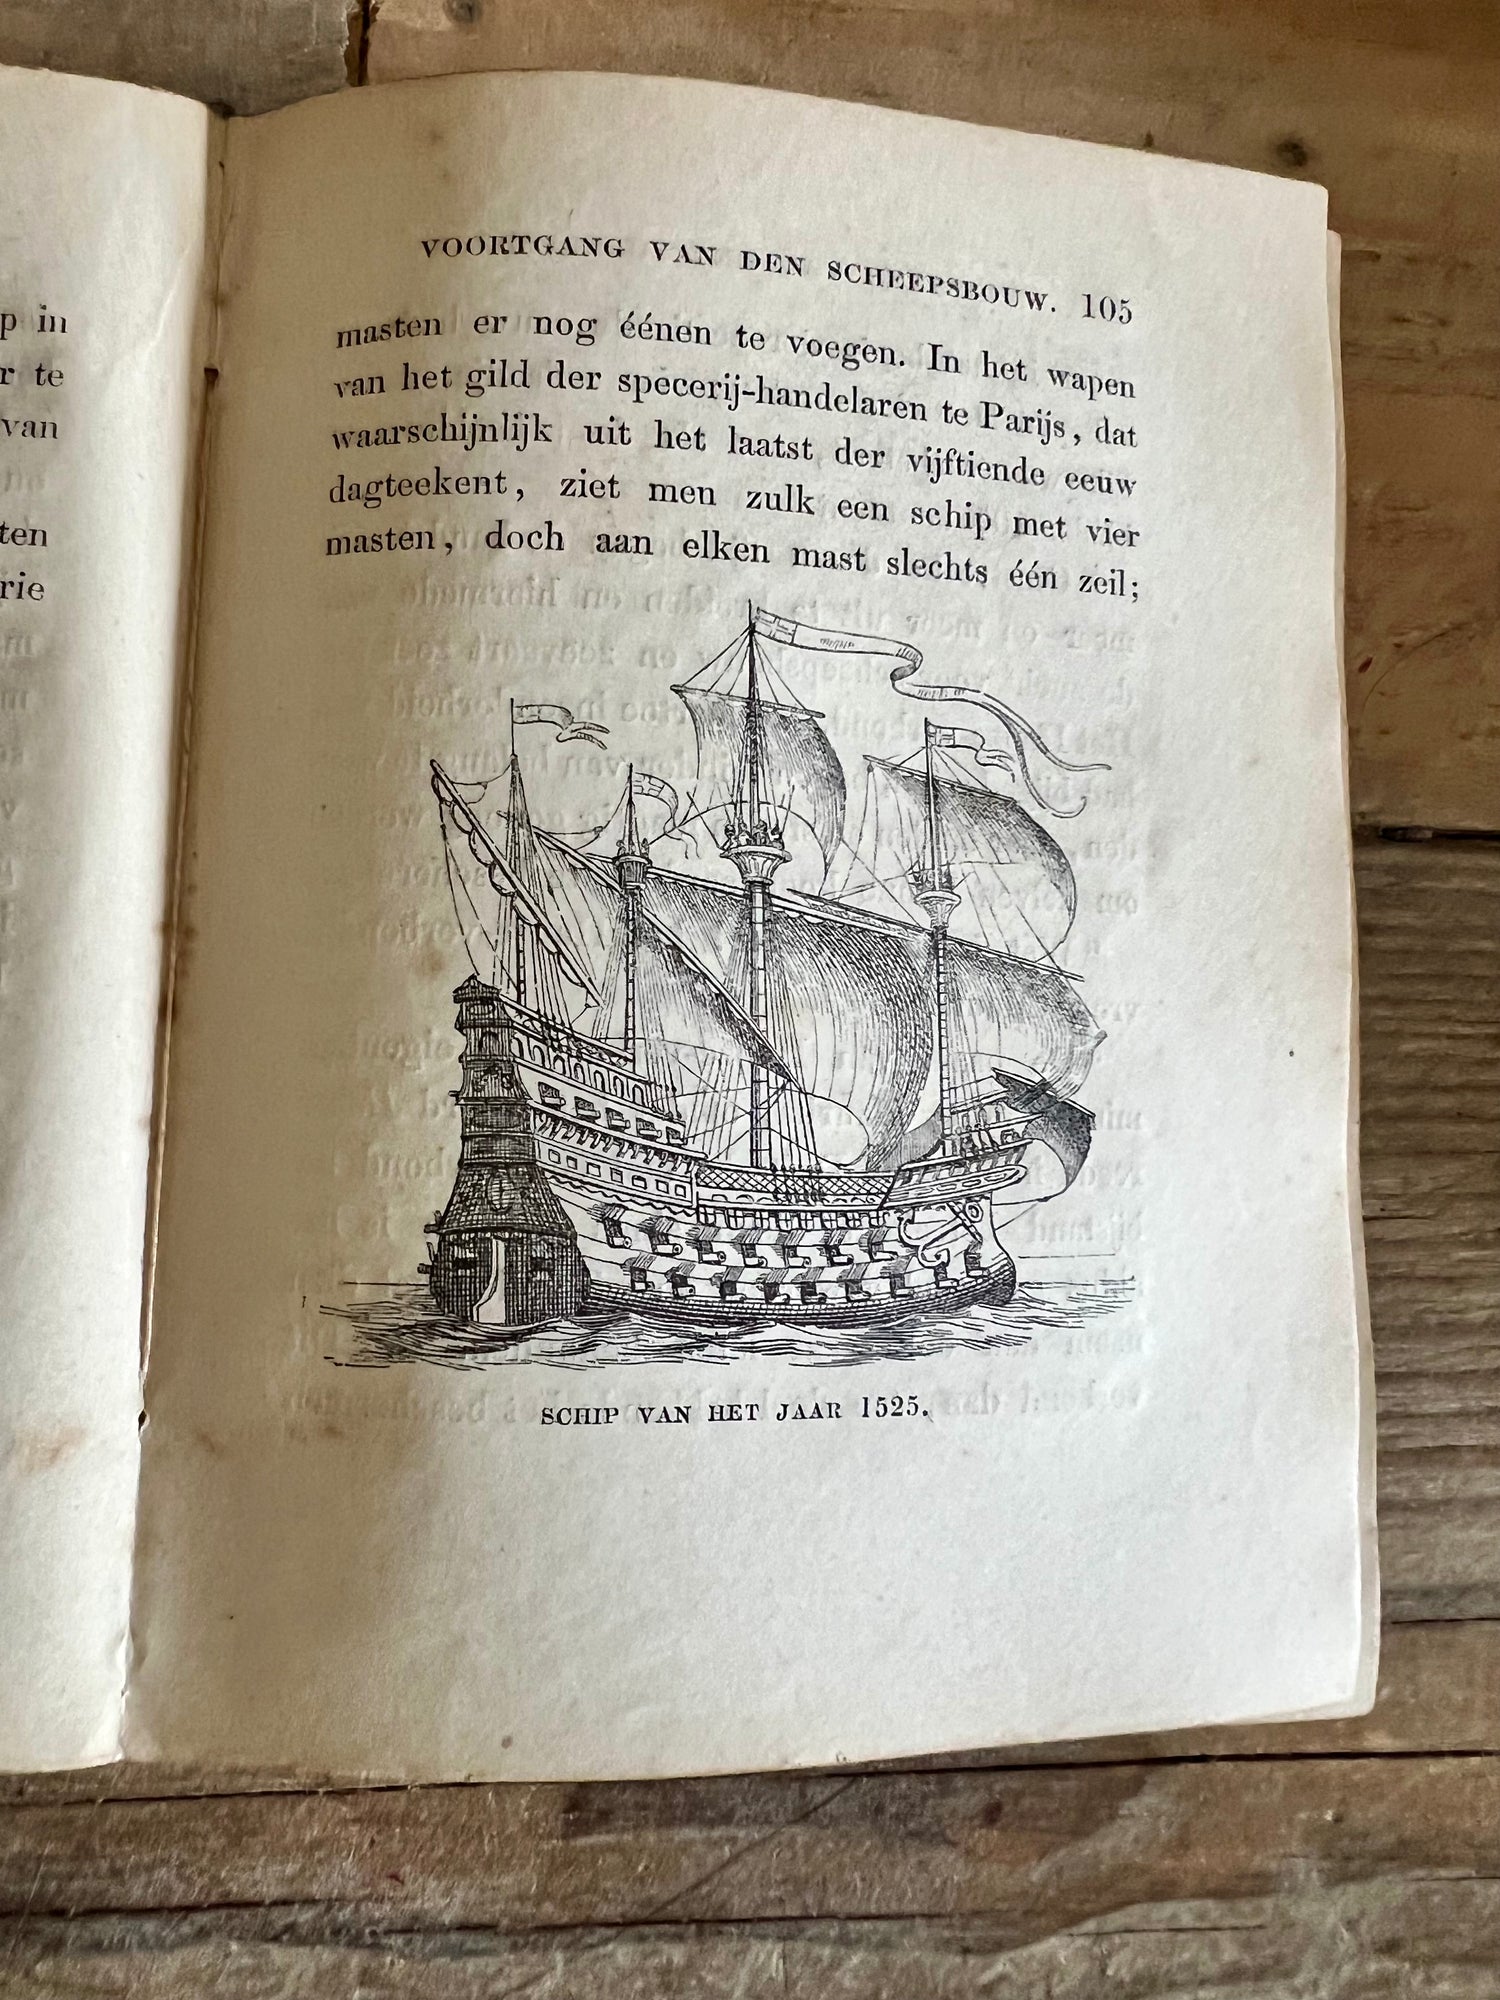 p in
r te
van
ten
rie
VOORTGANG VAN DEN SCHEEPSBOUW. 105
masten er nog éénen te voegen. In het wapen
van het gild der specerij-handelaren te Parijs, dat
waarschijnlijk uit het laatst der vijftiende eeuw
dagteekent, ziet men zulk een schip met vier
masten, doch aan elken mast slechts één zeil;
SCHIP VAN HET JAAR 1525.